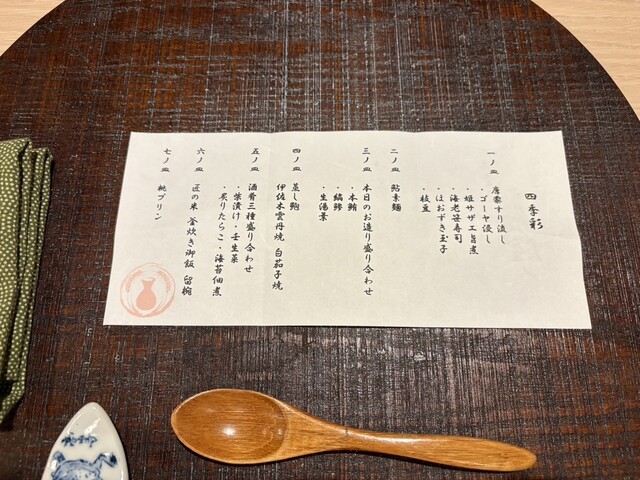 四季彩
一ノ皿 唐黍すり流し
・ゴーヤ浸し
・姫サザエ旨煮
・海老笹寿司
・ほおずき玉子
・枝豆
二ノ皿 鮎素麺
三ノ皿 本日のお造り盛り合わせ
・本鮪
・縞鯵
・生湯葉
四ノ皿 蒸し鮑
伊佐木雲丹焼 白茄子焼
五ノ皿 酒肴三種盛り合わせ
・柴漬け・壬生菜
・炙りたらこ・海苔佃煮
六ノ皿 匠の米 釜炊き御飯 留椀
七ノ皿 桃プリン